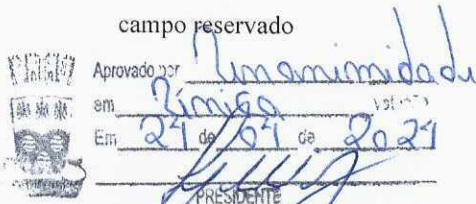 campo reservado
Aprovado por Unanimidade
em Única
Em 24 de 04 de 2024
PRESIDENTE